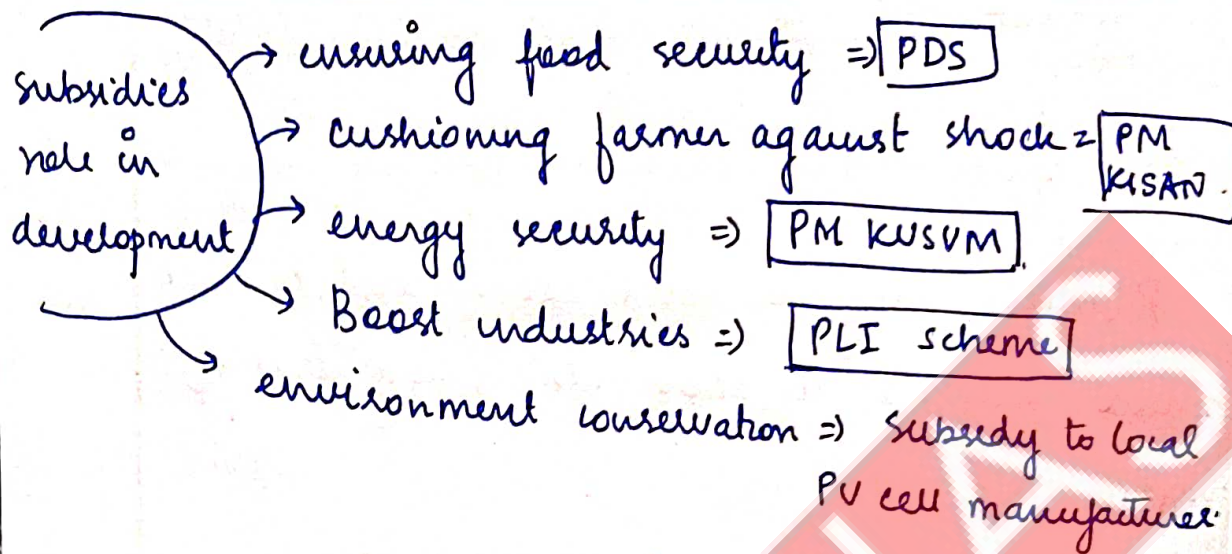 subsidies
role in
development
ensuring food security => PDS
cushioning farmer against shock = PM
KISAN.
energy security => PM KUSUM.
Boost industries => PLI scheme
environment conservation => Subsedy to local
PV cell manufacturer.
IAS